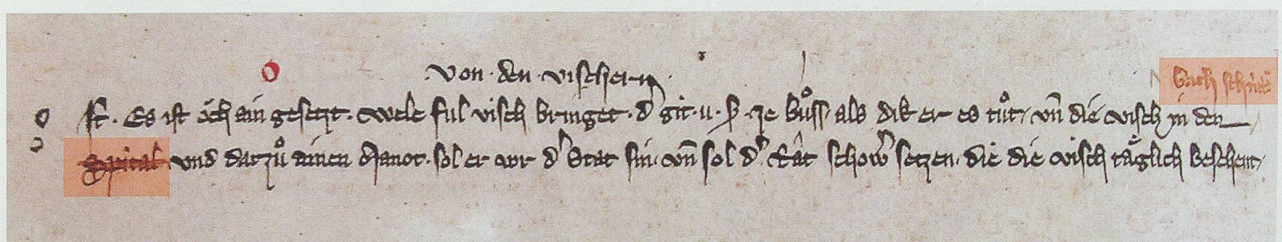 Von · den · vischern ·
Bach schütti
Jt · Es ist öch ain gesetzt · wele ful visch bringet · dˢ git · v · ß · ze bůss · als dik er es tůt · vn̄ die visch in den
Spital vnd darzů ainen Manot · sol er vor dˢ Stat sin · vn̄ sol dˢ Rât schowˢ setzen · die die visch täglich beschent ·